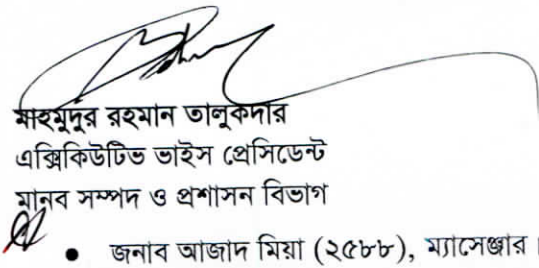 মাহমুদুর রহমান তালুকদার
এক্সিকিউটিভ ভাইস প্রেসিডেন্ট
মানব সম্পদ ও প্রশাসন বিভাগ
• জনাব আজাদ মিয়া (২৫৮৮), ম্যাসেঞ্জার।